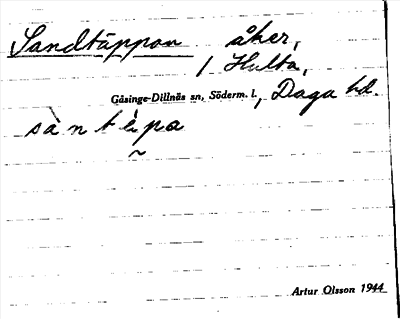 Sandtäppan åker,
/ Hulta,
Gåsinge-Dillnäs sn, Söderm. l., Daga hd.
sàntèpa
~
Artur Olsson 1944